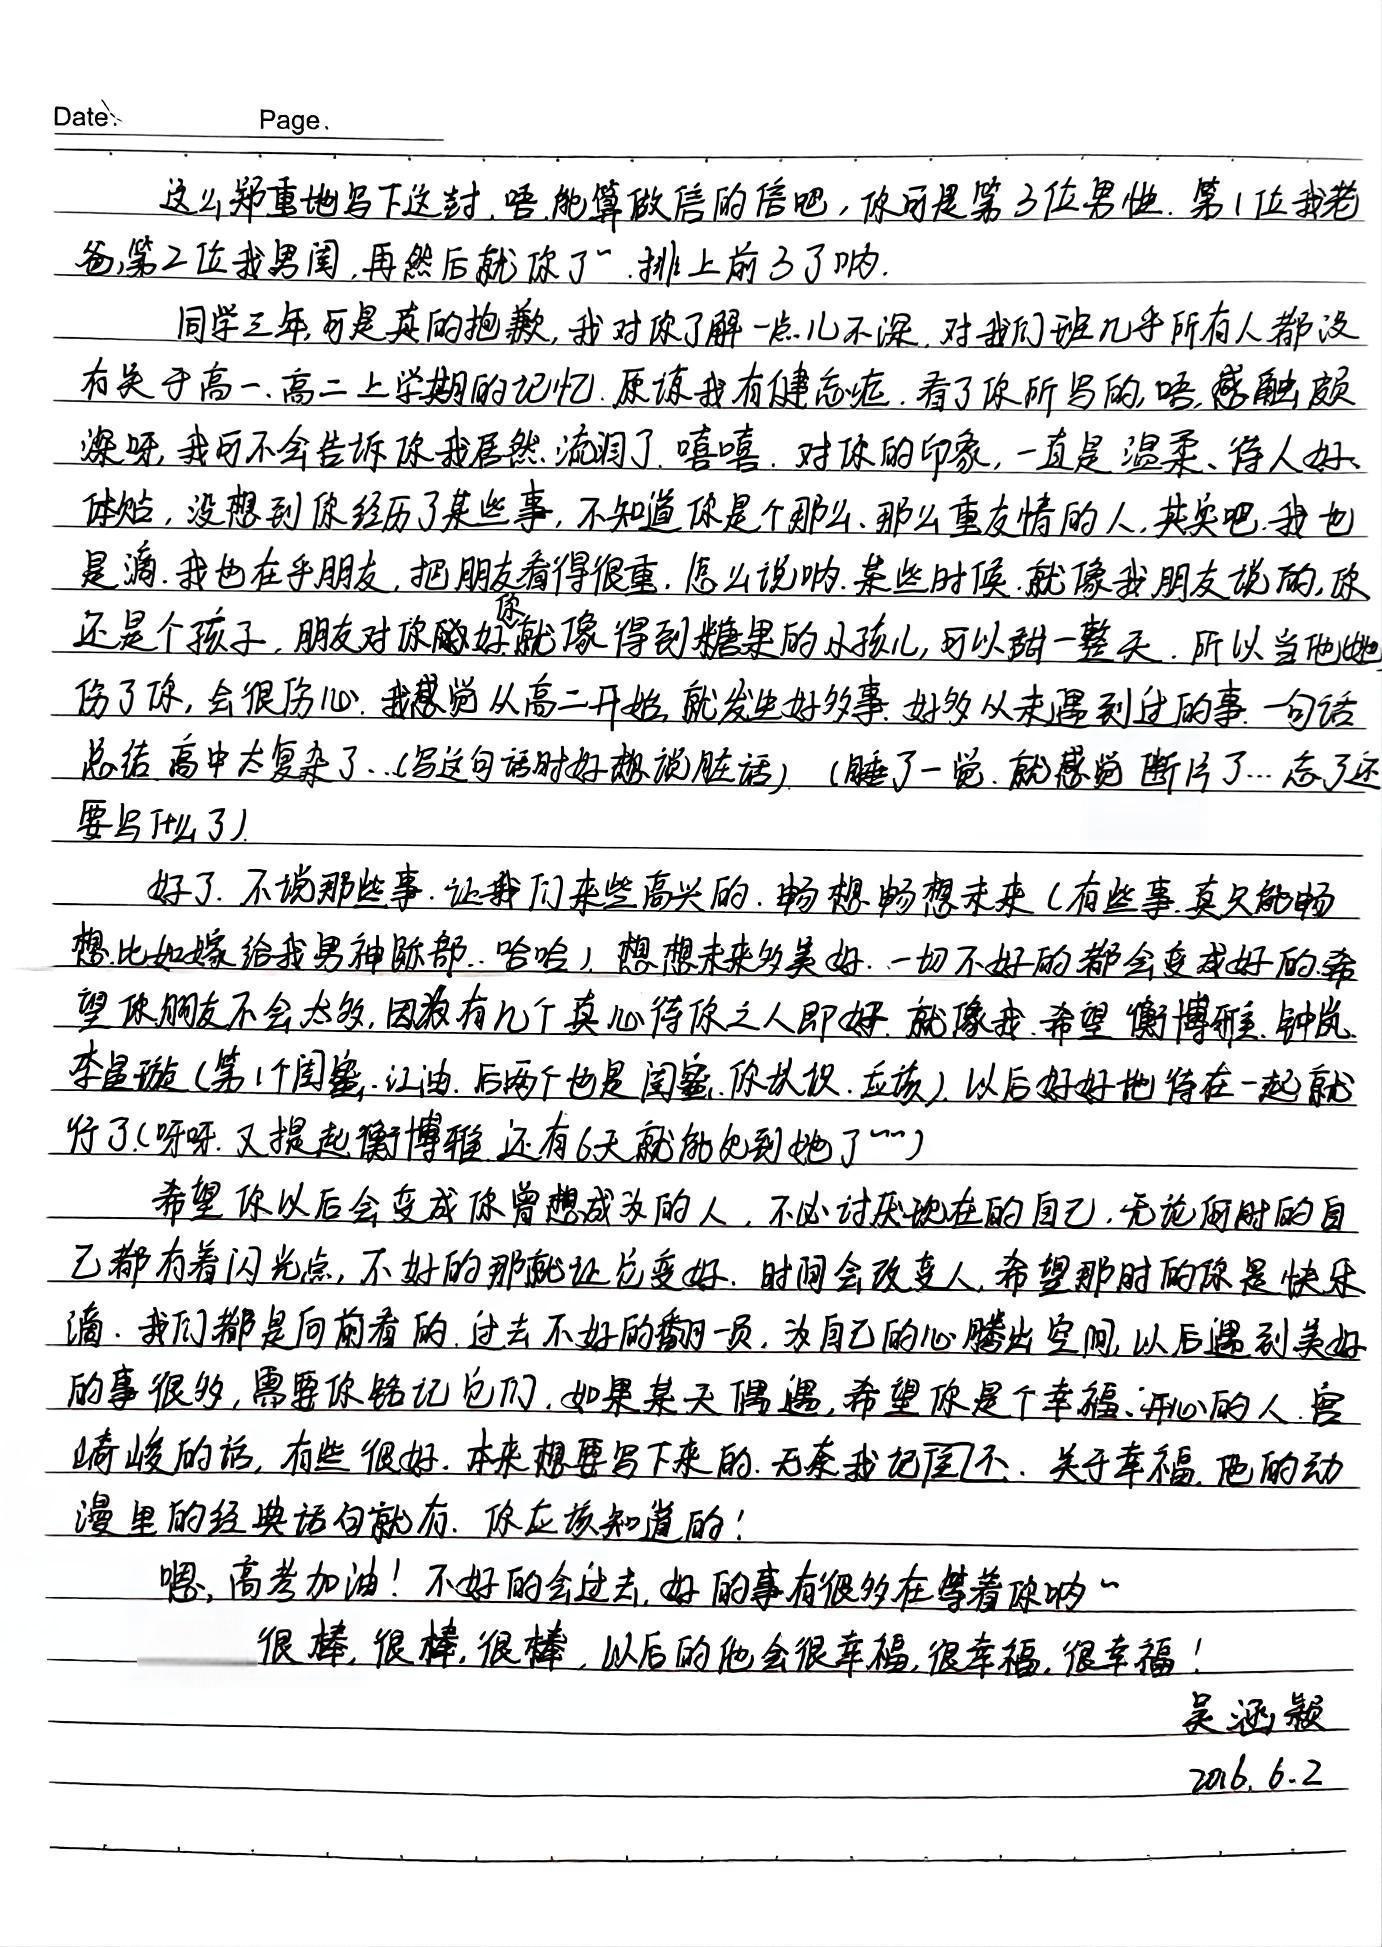 Date:
Page.
这么郑重地写下这封、唔、能算做信的信吧，你可是第3位男性．第1位我老
爸，第2位我男闺，再然后就你了~．排上前3了呐．
同学三年，可是真的抱歉，我对你了解一点儿不深．对我们班几乎所有人都没
有关于高一、高二上学期的记忆．原谅我有健忘症．看了你所写的，唔，感触颇
深呀，我可不会告诉你我居然流泪了．嘻嘻．对你的印象，一直是温柔、待人好、
体贴，没想到你经历了某些事，不知道你是个那么、那么重友情的人，其实吧．我也
是滴．我也在乎朋友，把朋友看得很重．怎么说呐．某些时候．就像我朋友说的，你
还是个孩子，朋友对你的好，你就像得到糖果的小孩儿，可以甜一整天．所以当他/她
伤了你，会很伤心．我感觉从高二开始，就发生好多事．好多从未遇到过的事．一句话
总结，高中太复杂了…（写这句话时好想说脏话）（睡了一觉．就感觉断片了…忘了还
要写什么了）．
好了．不说那些事．让我们来些高兴的．畅想畅想未来（有些事，真只能畅
想．比如嫁给我男神 哈哈）．想想未来多美好．一切不好的都会变成好的．希
望你朋友不会太多，因为有几个真心待你之人即好．就像我．希望衡博雅．钟岚．
李昱璇（第1个闺蜜，江油．后两个也是闺蜜，你认识．应该）．以后好好地待在一起就
行了（呀呀．又提起衡博雅．还有6天就能见到她了~~~）
希望你以后会变成你曾想成为的人，不必讨厌现在的自己．无论何时的自
己都有着闪光点，不好的那就让它变好．时间会改变人，希望那时的你是快乐
滴．我们都是向前看的．过去不好的翻一页，为自己的心腾出空间，以后遇到美好
的事很多，需要你铭记它们．如果某天偶遇，希望你是个幸福、开心的人．宫
崎峻的话，有些很好．本来想要写下来的．无奈我记不住．关于幸福，他的动
漫里的经典语句就有．你应该知道的！
嗯，高考加油！不好的会过去，好的事有很多在等着你呐~
很棒，很棒，很棒，以后的他会很幸福，很幸福，很幸福！
吴涵颖
2016.6.2